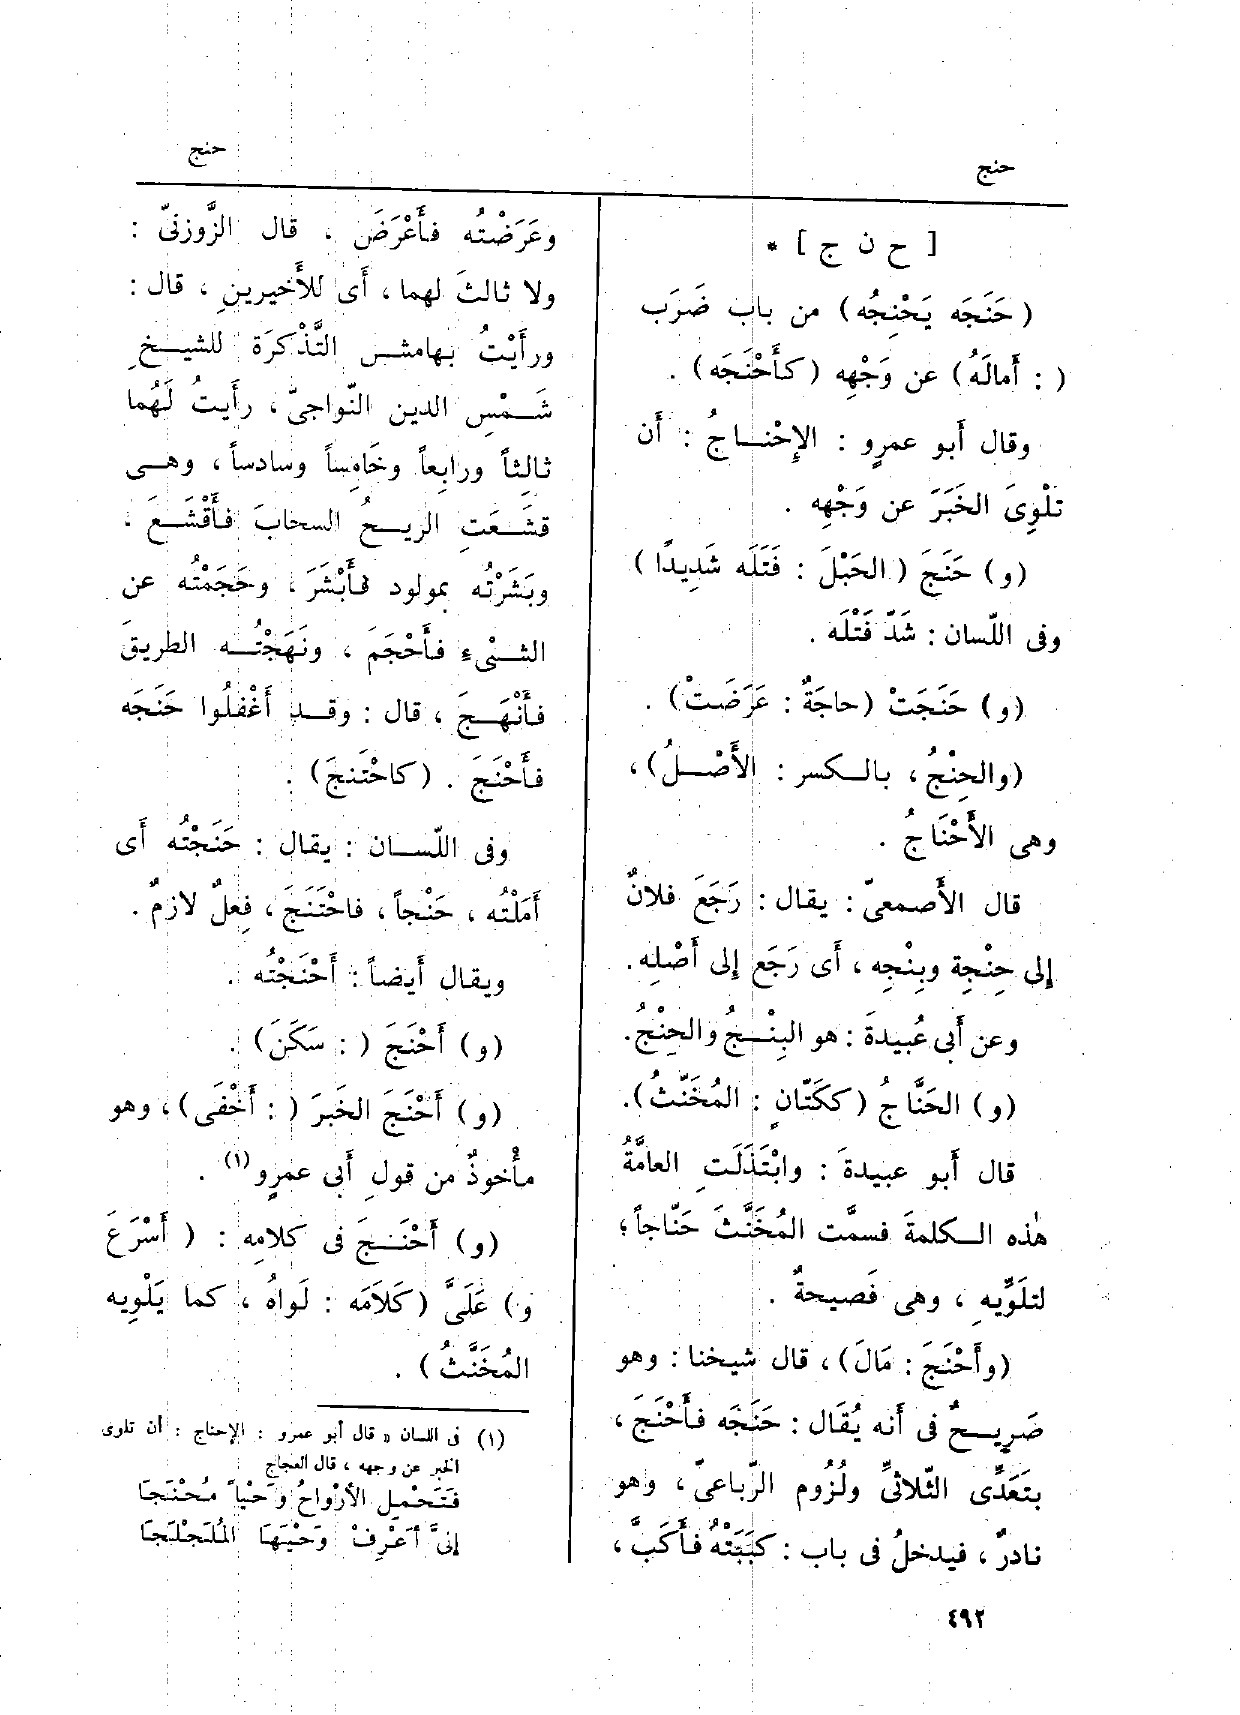 حنج
حنج
[ ح ن ج ] *
(حَنَجَه يَحْنِجُه) من باب ضَرَب
( : أَمالَهُ) عن وَجْهِه (كأَحْنَجَه) .
وقال أَبو عمرٍو : الإِحْنـاجُ : أَن
تَلْوِىَ الخَبَرَ عن وَجْهِه .
(و) حَنَجَ (الحَبْلَ : فَتَلَه شَدِيدًا)
وفى اللّسان : شَدّ فَتْلَه .
(و) حَنَجَتْ (حاجَةٌ : عَرَضَتْ) .
(والحِنْجُ ، بالـكسر : الأَصْـلُ) ،
وهى الأَحْنَاجُ .
قال الأَصمعىّ : يقال : رَجَعَ فلانٌ
إلى حِنْجِة وبِنْجِه ، أَى رَجَع إلى أَصْلِه .
وعن أَبى عُبيدةَ : هو البِنْـجُ والحِنْجُ.
(و) الحَنَّاجُ (ككَتّانٍ : المُخَنَّثُ).
قال أَبو عبيدةَ : وابْتَذَلَتِ العامَّةُ
هٰذه الـكلمةَ فسمَّت المُخَنَّثَ حَنّاجاً ؛
لتلَوِّيهِ ، وهى فَصيحةٌ .
(وأَحْنَجَ : مَالَ) ، قال شيخنا : وهو
صَرِيـحٌ فى أَنه يُقَال : حَنَجَه فأَحْنَجَ ،
بتَعَدِّى الثّلاثىِّ ولُزُوم الرّباعىّ ، وهو
نادرٌ ، فيدخلُ فى باب : كبَبْتُهُ فأَكَبَّ ،
وعَرَضْتُه فأَعْرَضَ ، قال الزَّوزنىّ :
ولا ثالثَ لهما ، أَى للأَخيرينِ ، قال :
ورأَيْتُ بهامش التَّذْكرَة للشيـخِ
شَـمْسِ الدين النّواجىّ ، رأَيتُ لَهُما
ثالثاً ورابِعاً وخَامِساً وسادساً ، وهـى
قشَـعَتِ الريـحُ السحابَ فأَقْشَـعَ ،
وبَشَرْتُه بمولود فأَبْشَرَ ، وحَجَمْتُه عن
الشىْء فأَحْجَمَ ، ونَهَجْتُـه الطريقَ
فأَنْهَـجَ ، قال : وقـد أَغْفلُوا حَنَجَه
فأَحْنَجَ . (كاحْتَنجَ) .
وفى اللّسـان : يقال : حَنَجْتُه أَى
أَمَلْتُه ، حَنْجاً ، فاحْتَنَجَ ، فِعلٌ لازمٌ .
ويقال أَيضاً : أَحْنَجْتُه .
(و) أَحْنَجَ ( : سَكَنَ) .
(و) أَحْنَجَ الخَبرَ ( : أَخْفَى) ، وهو
مأْخوذٌ من قولِ أَبى عمرٍو (١) .
(و) أَحْنَـجَ فى كلامِه : ( أَسْرَعَ
و) عَلَىَّ (كَلاَمَه : لَواهُ ، كما يَلْوِيه
المُخَنَّثُ ) .
(١) فى اللسان « قال أبو عمرو : الإحناج : أن تلوى
الخبر عن وجهه ، قال العجاج
فَتَحْمِلِ الأَرْوَاحُ وَحْياً مُحْنَجَا
إِنىَّ أعْرِفْ وَحْيَهَا المُلَجْلَجَا
٤٩٢